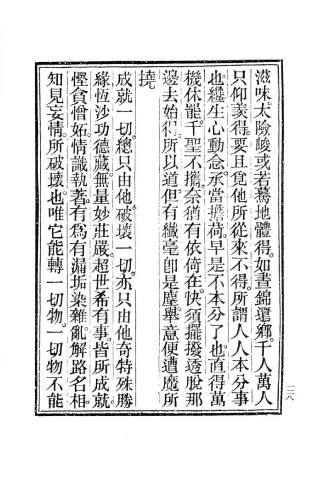 滋味。太險峻或若驀地體得。如晝錦還鄉。千人萬人
只仰羨得。要且覓他所從來不得。所謂人人本分事
也。纔生心動念。承當擔荷。早是不本分了也。直得萬
機休罷。千聖不攜。奈猶有依倚在。快須擺撥透脫那
邊去始得。所以道但有纖毫卽是塵。舉意便遭魔所
撓
成就一切。總只由他破壞一切。亦只由他奇特殊勝
緣恆沙功德藏無量妙莊嚴。超世希有事。皆所成就
慳貪憎妬。情識執著。有爲有漏。垢染雜亂。解路名相。
知見妄情。所破壞也。唯它能轉一切物。一切物不能
三八